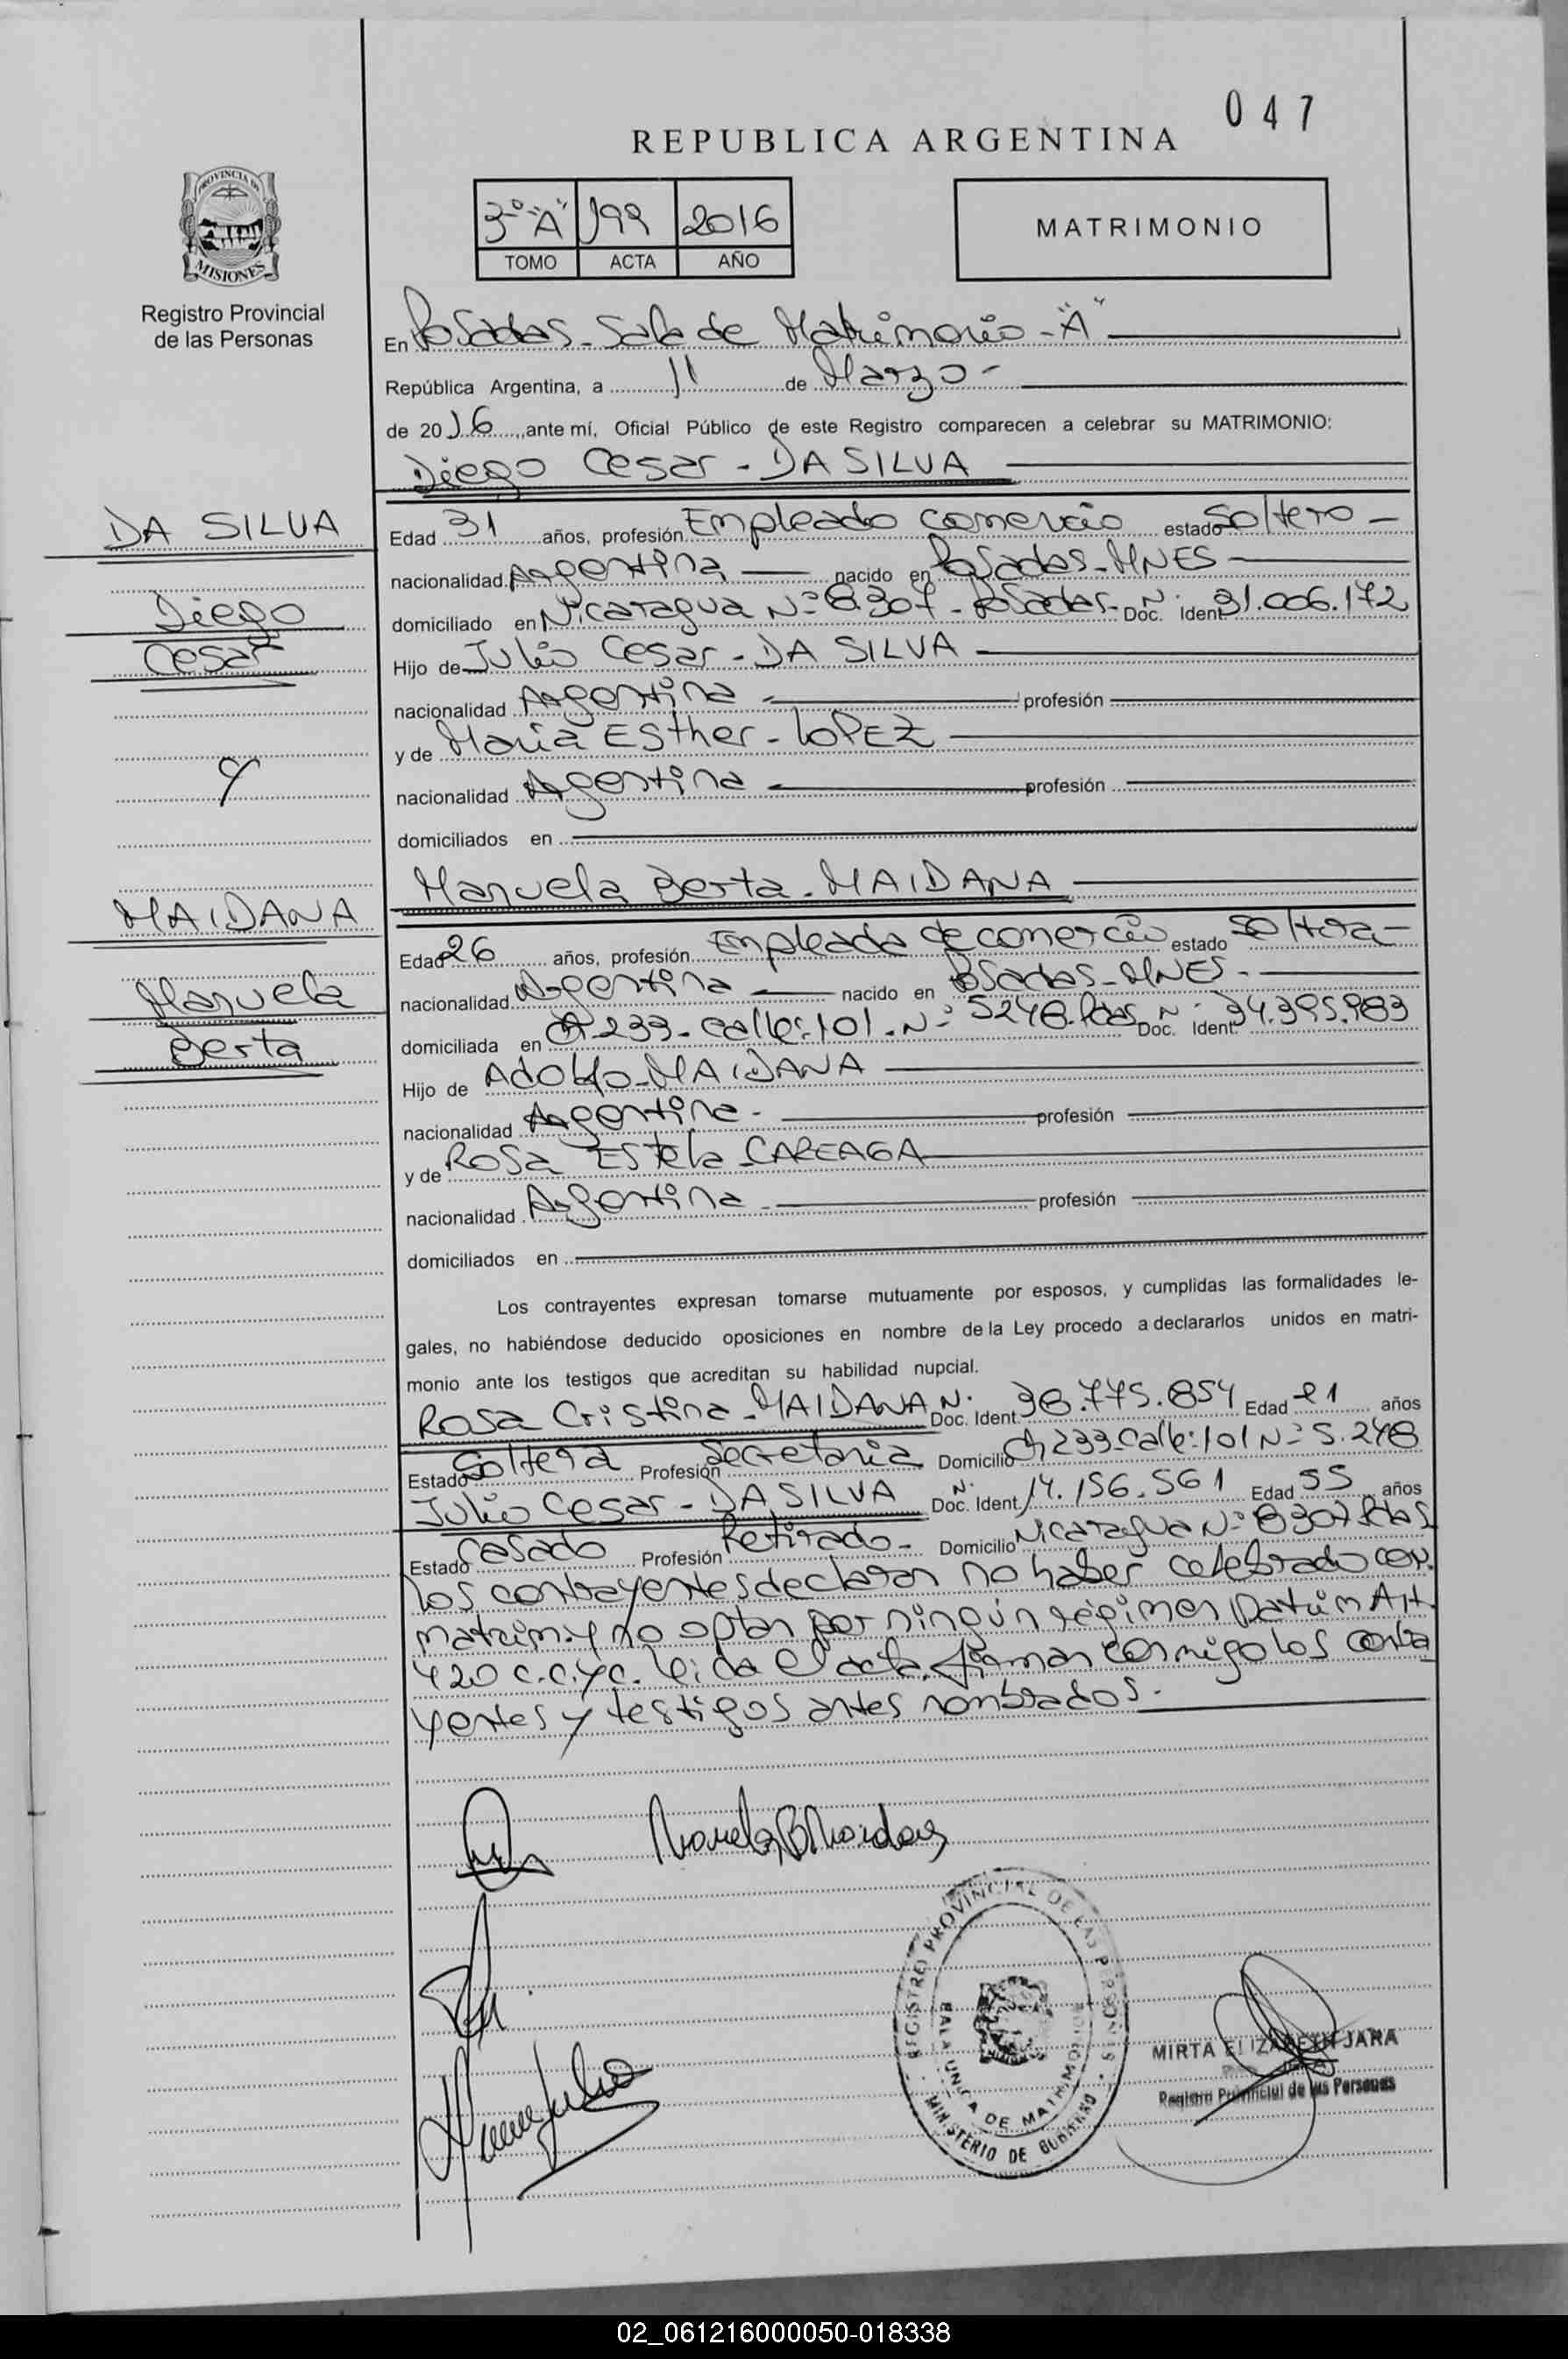 047
REPUBLICA ARGENTINA
3º "A" 199 2016
TOMO ACTA AÑO
MATRIMONIO
PROVINCIA DE
MISIONES
Registro Provincial
de las Personas
En Posadas - Sala de Matrimonio - "A"
República Argentina, a 11 de Marzo -
de 2016, ante mí, Oficial Público de este Registro comparecen a celebrar su MATRIMONIO:
Diego Cesar - DA SILVA
DA SILVA
Diego
Cesar
Y
MAIDANA
Manuela
Berta
Edad 31 años, profesión Empleado comercio estado Soltero -
nacionalidad Argentina nacido en Posadas - MNES
domiciliado en Nicaragua Nº 8.307 - Posadas - Doc. Ident N. 31.006.172
Hijo de Julio Cesar - DA SILVA
nacionalidad Argentina - profesión
y de Maria Esther - LOPEZ
nacionalidad Argentina - profesión
domiciliados en
Manuela Berta - MAIDANA
Edad 26 años, profesión Empleada de comercio estado Soltera -
nacionalidad Argentina nacido en Posadas - MNES -
domiciliada en Ch 233 - calle: 101 - Nº 5248. Pdas Doc. Ident. N. 34.395.983
Hijo de Adolfo - MAIDANA
nacionalidad Argentina - profesión
y de Rosa Estela - CAREAGA
nacionalidad Argentina - profesión
domiciliados en
Los contrayentes expresan tomarse mutuamente por esposos, y cumplidas las formalidades le-
gales, no habiéndose deducido oposiciones en nombre de la Ley procedo a declararlos unidos en matri-
monio ante los testigos que acreditan su habilidad nupcial.
Rosa Cristina - MAIDANA Doc. Ident. N. 38.775.854 Edad 21 años
Estado Soltera Profesión Secretaria Domicilio Ch 233 - Calle: 101 Nº 5.248
Julio Cesar - DA SILVA Doc. Ident. N. 14.156.561 Edad 55 años
Estado Casado Profesión Retirado - Domicilio Nicaragua Nº 8307 Pdas
los contrayentes declaran no haber celebrado conv.
matrim. y no optan por ningún régimen patrim Art.
420 C.C.yC. Leida el acta, firman conmigo los contra
yentes y testigos antes nombrados. -
Manuela B Maidana
REGISTRO PROVINCIAL DE LAS PERSONAS
SALA UNICA DE MATRIMONIO
MINISTERIO DE GOBIERNO
MIRTA ELIZABETH JARA
Registro Provincial de las Personas
02_061216000050-018338